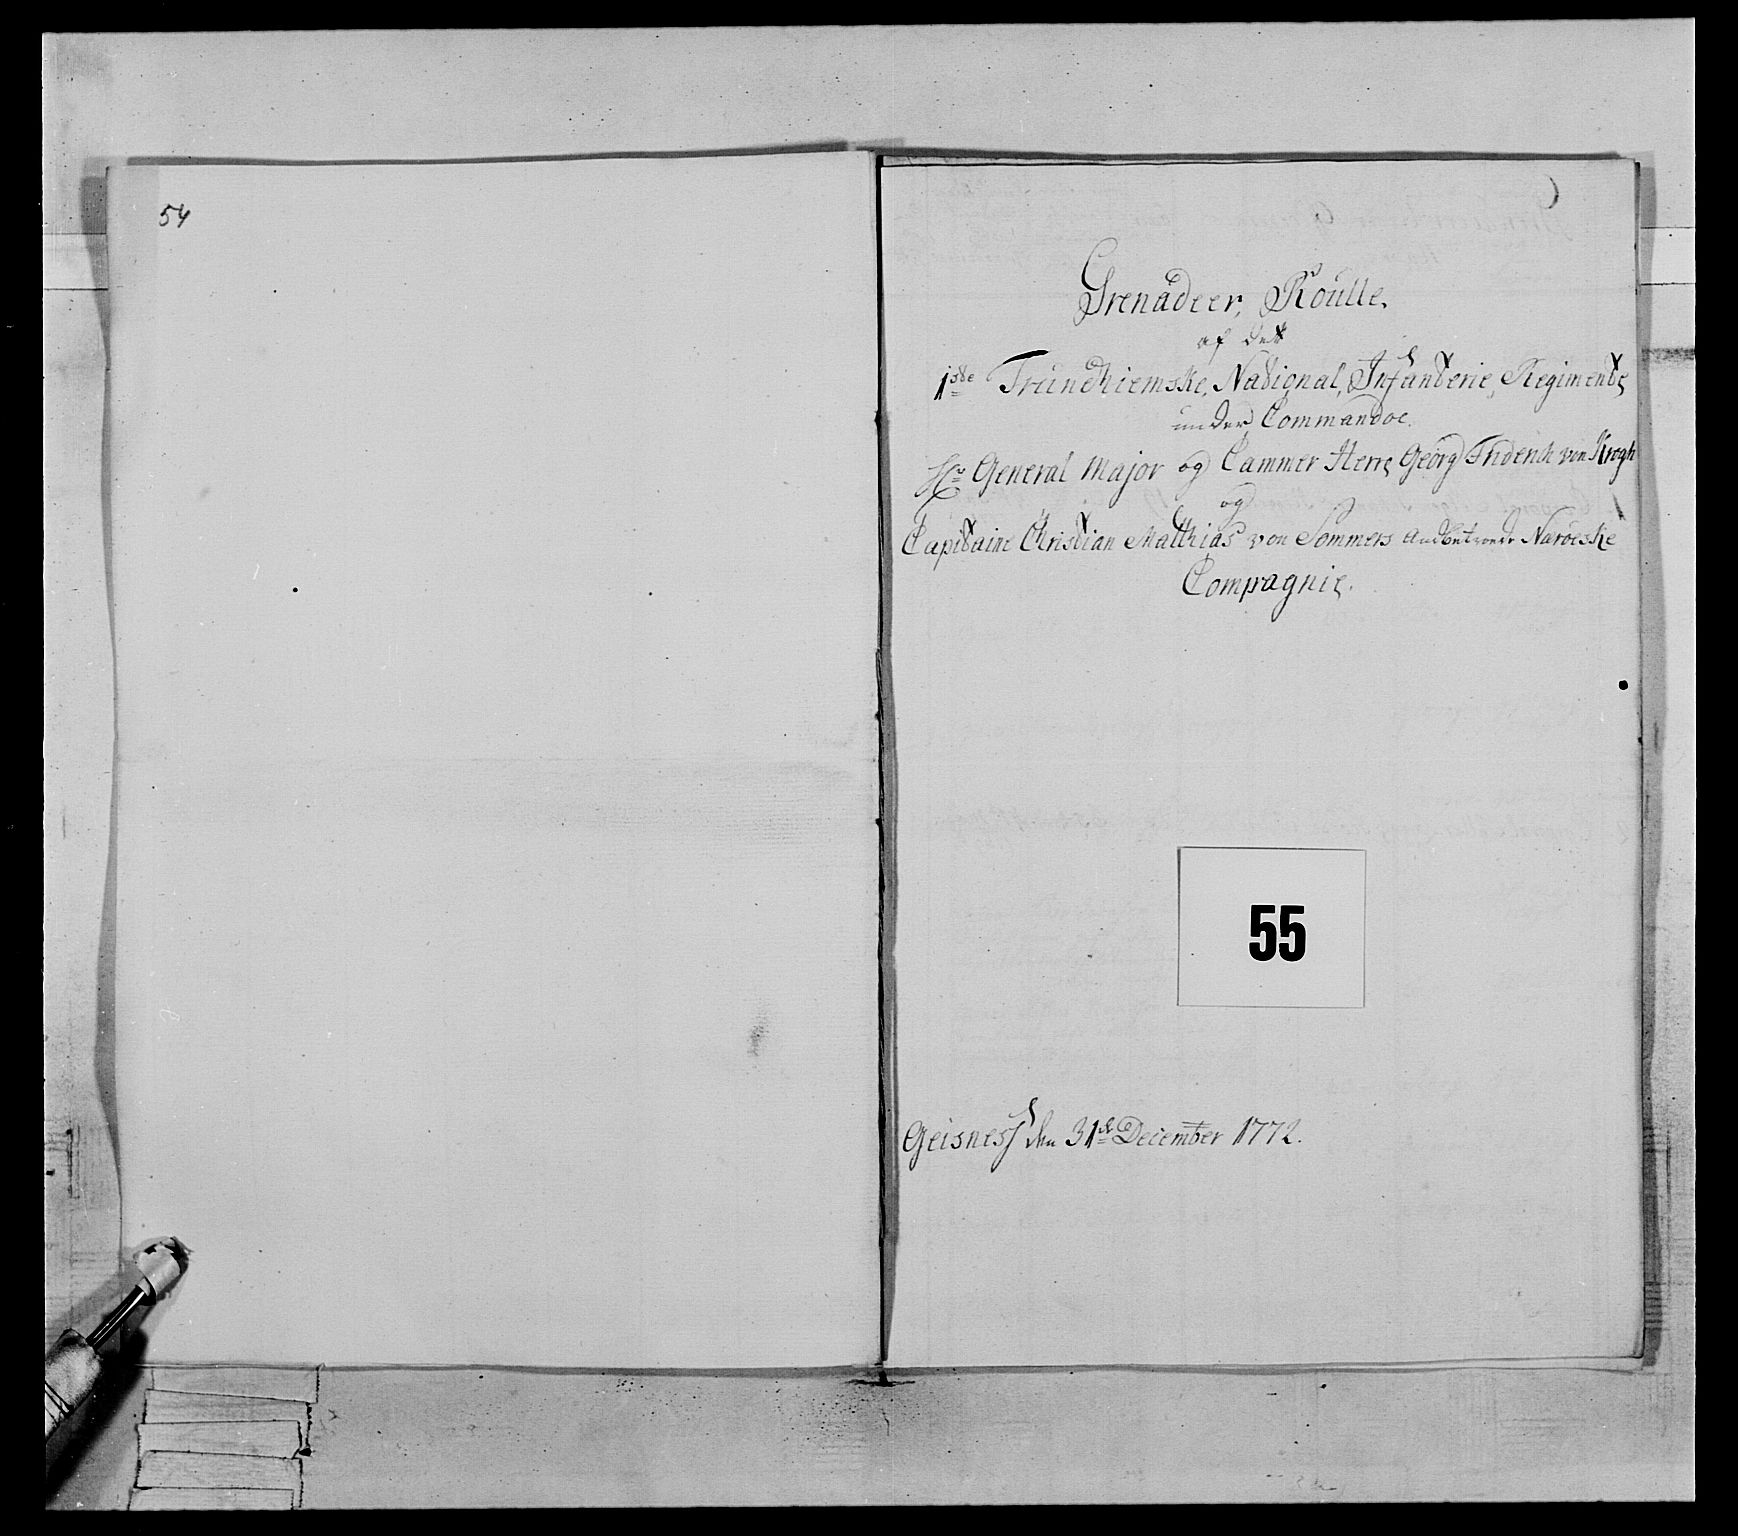 54
Grenadeer, Roulle.
af det
1ste Trundhiemske, National, Infanterie, Regiments
under Commandoe.
Hr General Major og Cammer Herre Georg Friderich von Krogh
og
Capitaine Christian Matthias von Sommers Andbetroede Naröeske
Compagnie.
55
Geisness den 31te December 1772.